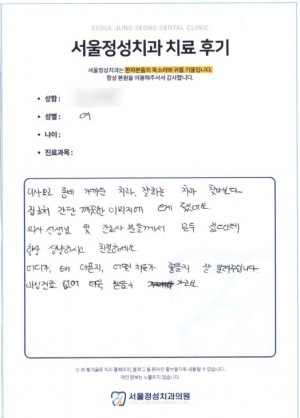 SEOUL JUNG SEONG DENTAL CLINIC
서울정성치과 치료 후기
서울정성치과는 환자분들의 목소리에 귀를 기울입니다.
항상 본원을 이용해주셔서 감사합니다.
• 성함 :
• 성별 : 여
• 나이 :
• 진료과목 :
이사오고 가까운 치과, 잘하는 치과
집근처 깨끗한 이미지에 오게 됐어요
의사 선생님 및 간호사 분들까지 모두
항상 친절하세요
어디가, 왜 아픈지, 어떤 치료가 좋을지 잘 알려주십니다
과잉진료 없어 더욱
※ 본 후기글은 치과 홈페이지, 블로그 등 온라인 홍보용으로 사용될 수 있습니다.
개인 정보는 노출되지 않습니다.
서울정성치과의원